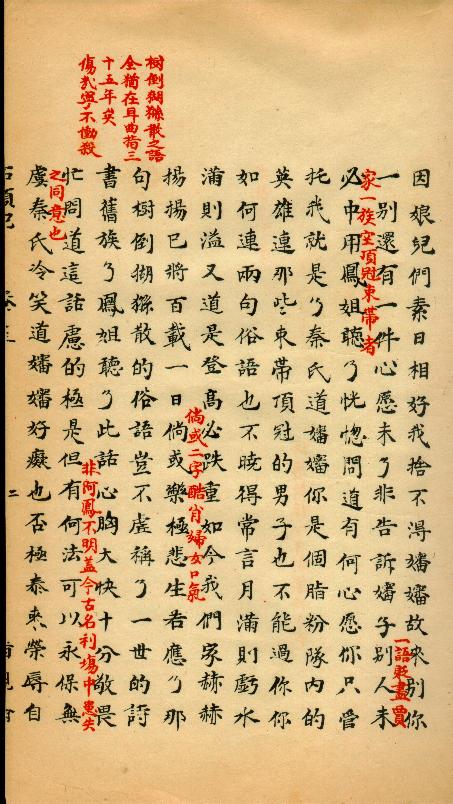 樹倒猢猻散之語
全猶在耳曲指三
十五年矣
傷哉寧不慟殺
因娘兒們素日相好我捨不得嬸嬸故來別你
一別還有一件心愿未了非告訴嬸子別人未
一語貶盡賈
必中用鳳姐聽了恍惚問道有何心愿你只管
家一族空頂冠束帶者
托我就是了秦氏道嬸嬸你是個脂粉隊內的
英雄連那些束帶頂冠的男子也不能過你你
如何連兩句俗語也不曉得常言月滿則虧水
滿則溢又道是登高必跌重如今我們家赫赫
倘或二字酷肖婦女口氣
揚揚已將百載一日倘或樂極悲生若應了那
句樹倒猢猻散的俗語豈不虛稱了一世的詩
書舊族了鳳姐聽了此話心胸大快十分敬畏
非阿鳳不明蓋今古名利場中患失
忙問道這話慮的極是但有何法可以永保無
之同意也
虞秦氏冷笑道嬸嬸好癡也否極泰來榮辱自
二